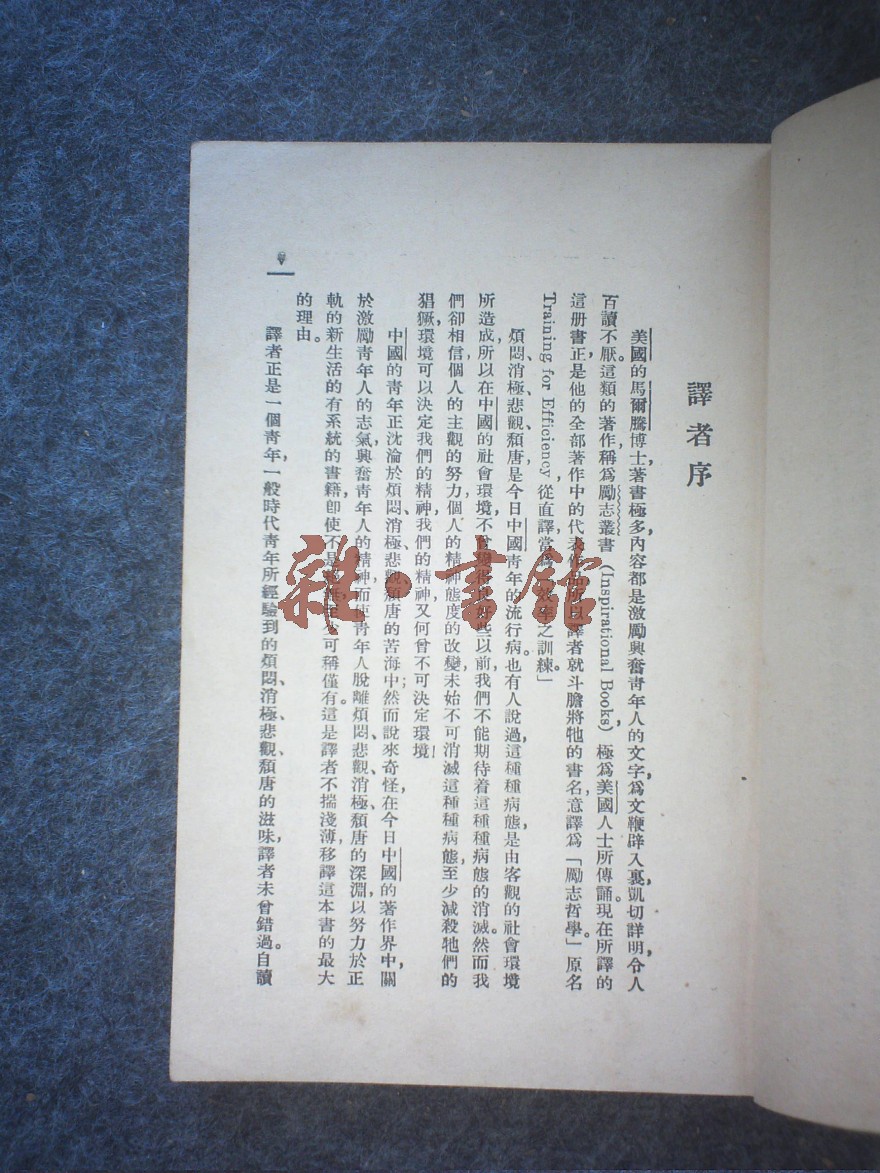 譯者序
美國的馬爾騰博士,著書極多,內容都是激勵興奮靑年人的文字,爲文鞭辟入裏,凱切詳明,令人
百讀不厭。這類的著作,稱爲勵志叢書 (Inspirational Books),極爲美國人士所傳誦。現在所譯的
這册書,正是他的全部著作中的代表作品,所以譯者就斗膽將牠的書名意譯爲「勵志哲學」原名
Training for Efficiency,從直譯當爲「效率之訓練。」
煩悶、消極、悲觀、頹唐、是今日中國靑年的流行病。也有人說過,這種種病態,是由客觀的社會環境
所造成,所以在中國的社會環境,不曾變得良好些以前,我們不能期待着這種種病態的消滅。然而我
們卻相信個人的主觀的努力,個人的精神態度的改變,未始不可消滅這種種病態,至少減殺牠們的
猖獗,環境可以決定我們的精神,我們的精神,又何曾不可決定環境
中國的靑年正沈淪於煩悶、消極、悲觀、頹唐的苦海中;然而說來奇怪,在今日中國的著作界中,關
於激勵靑年人的志氣,興奮靑年人的精神,而使靑年人脫離煩悶、悲觀、消極、頹唐的深淵,以努力於正
軌的新生活的有系統的書籍,卽使不是 至少可稱僅有。這是譯者不揣淺薄,移譯這本書的最大
的理由。
譯者正是一個靑年,一般時代靑年所經驗到的煩悶、消極、悲觀、頹唐的滋味,譯者未曾錯過。自讀
一
雜·書館